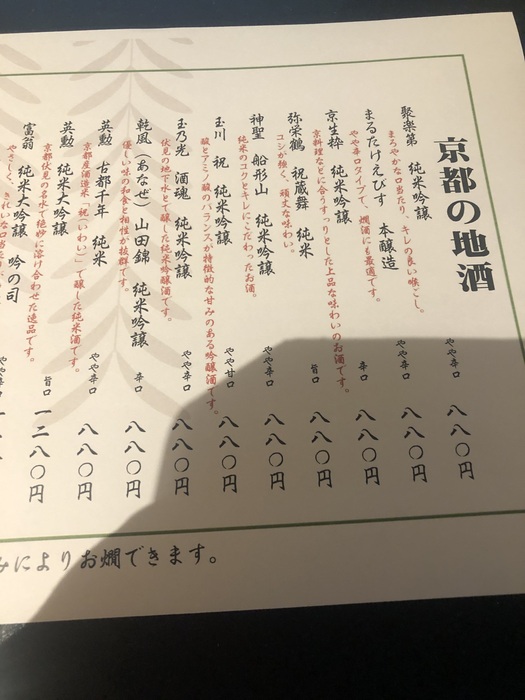 京都の地酒
聚楽第 純米吟醸 やや辛口 八八〇円
まろやかな口当たり、キレの良い喉ごし。
まるたけえびす 本醸造 やや辛口 八八〇円
やや辛口タイプで、燗酒にも最適です。
京生粋 純米吟醸 辛口 八八〇円
京料理などに合うすっりとした上品な味わいのお酒です。
弥栄鶴 祝蔵舞 純米 旨口 八八〇円
コシが強く、頑丈な味わい。
神聖 船形山 純米吟醸 やや辛口 八八〇円
純米のコクとキレにこだわったお酒。
玉川 祝 純米吟醸 やや甘口 八八〇円
酸とアミノ酸のバランスが特徴的な甘みのある吟醸酒です。
玉乃光 酒魂 純米吟醸 やや辛口 八八〇円
伏見の地下水とで醸した純米吟醸酒です。
乾風(あなぜ) 山田錦 純米吟醸 辛口 八八〇円
優しい味の和食と相性が抜群です。
英勲 古都千年 純米 やや辛口 八八〇円
京都産酒造米「祝(いわい)」で醸した純米酒です。
英勲 純米大吟醸 旨口 一二八〇円
京都伏見の名水で絶妙に溶け合わせた逸品です。
富翁 純米大吟醸 吟の司 やや辛口
やさしく、きれいな口当
みによりお燗できます。